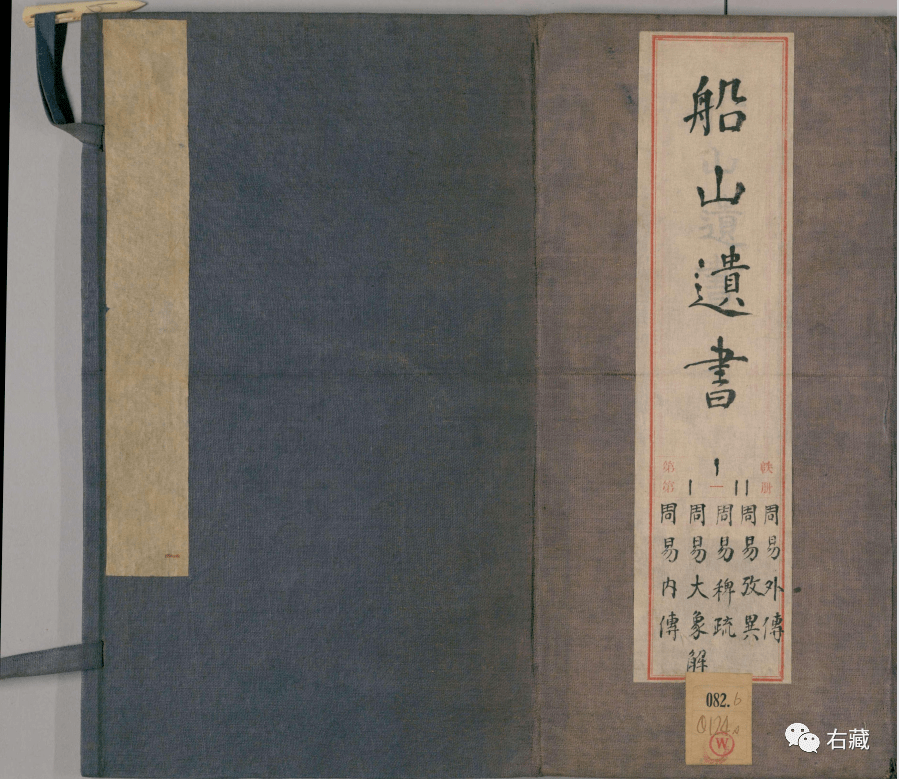 船山遺書
第〡帙
第〡一〢册
周易内傳
周易大象解
周易稗疏
周易攷異
周易外傳
082.6
W
右藏